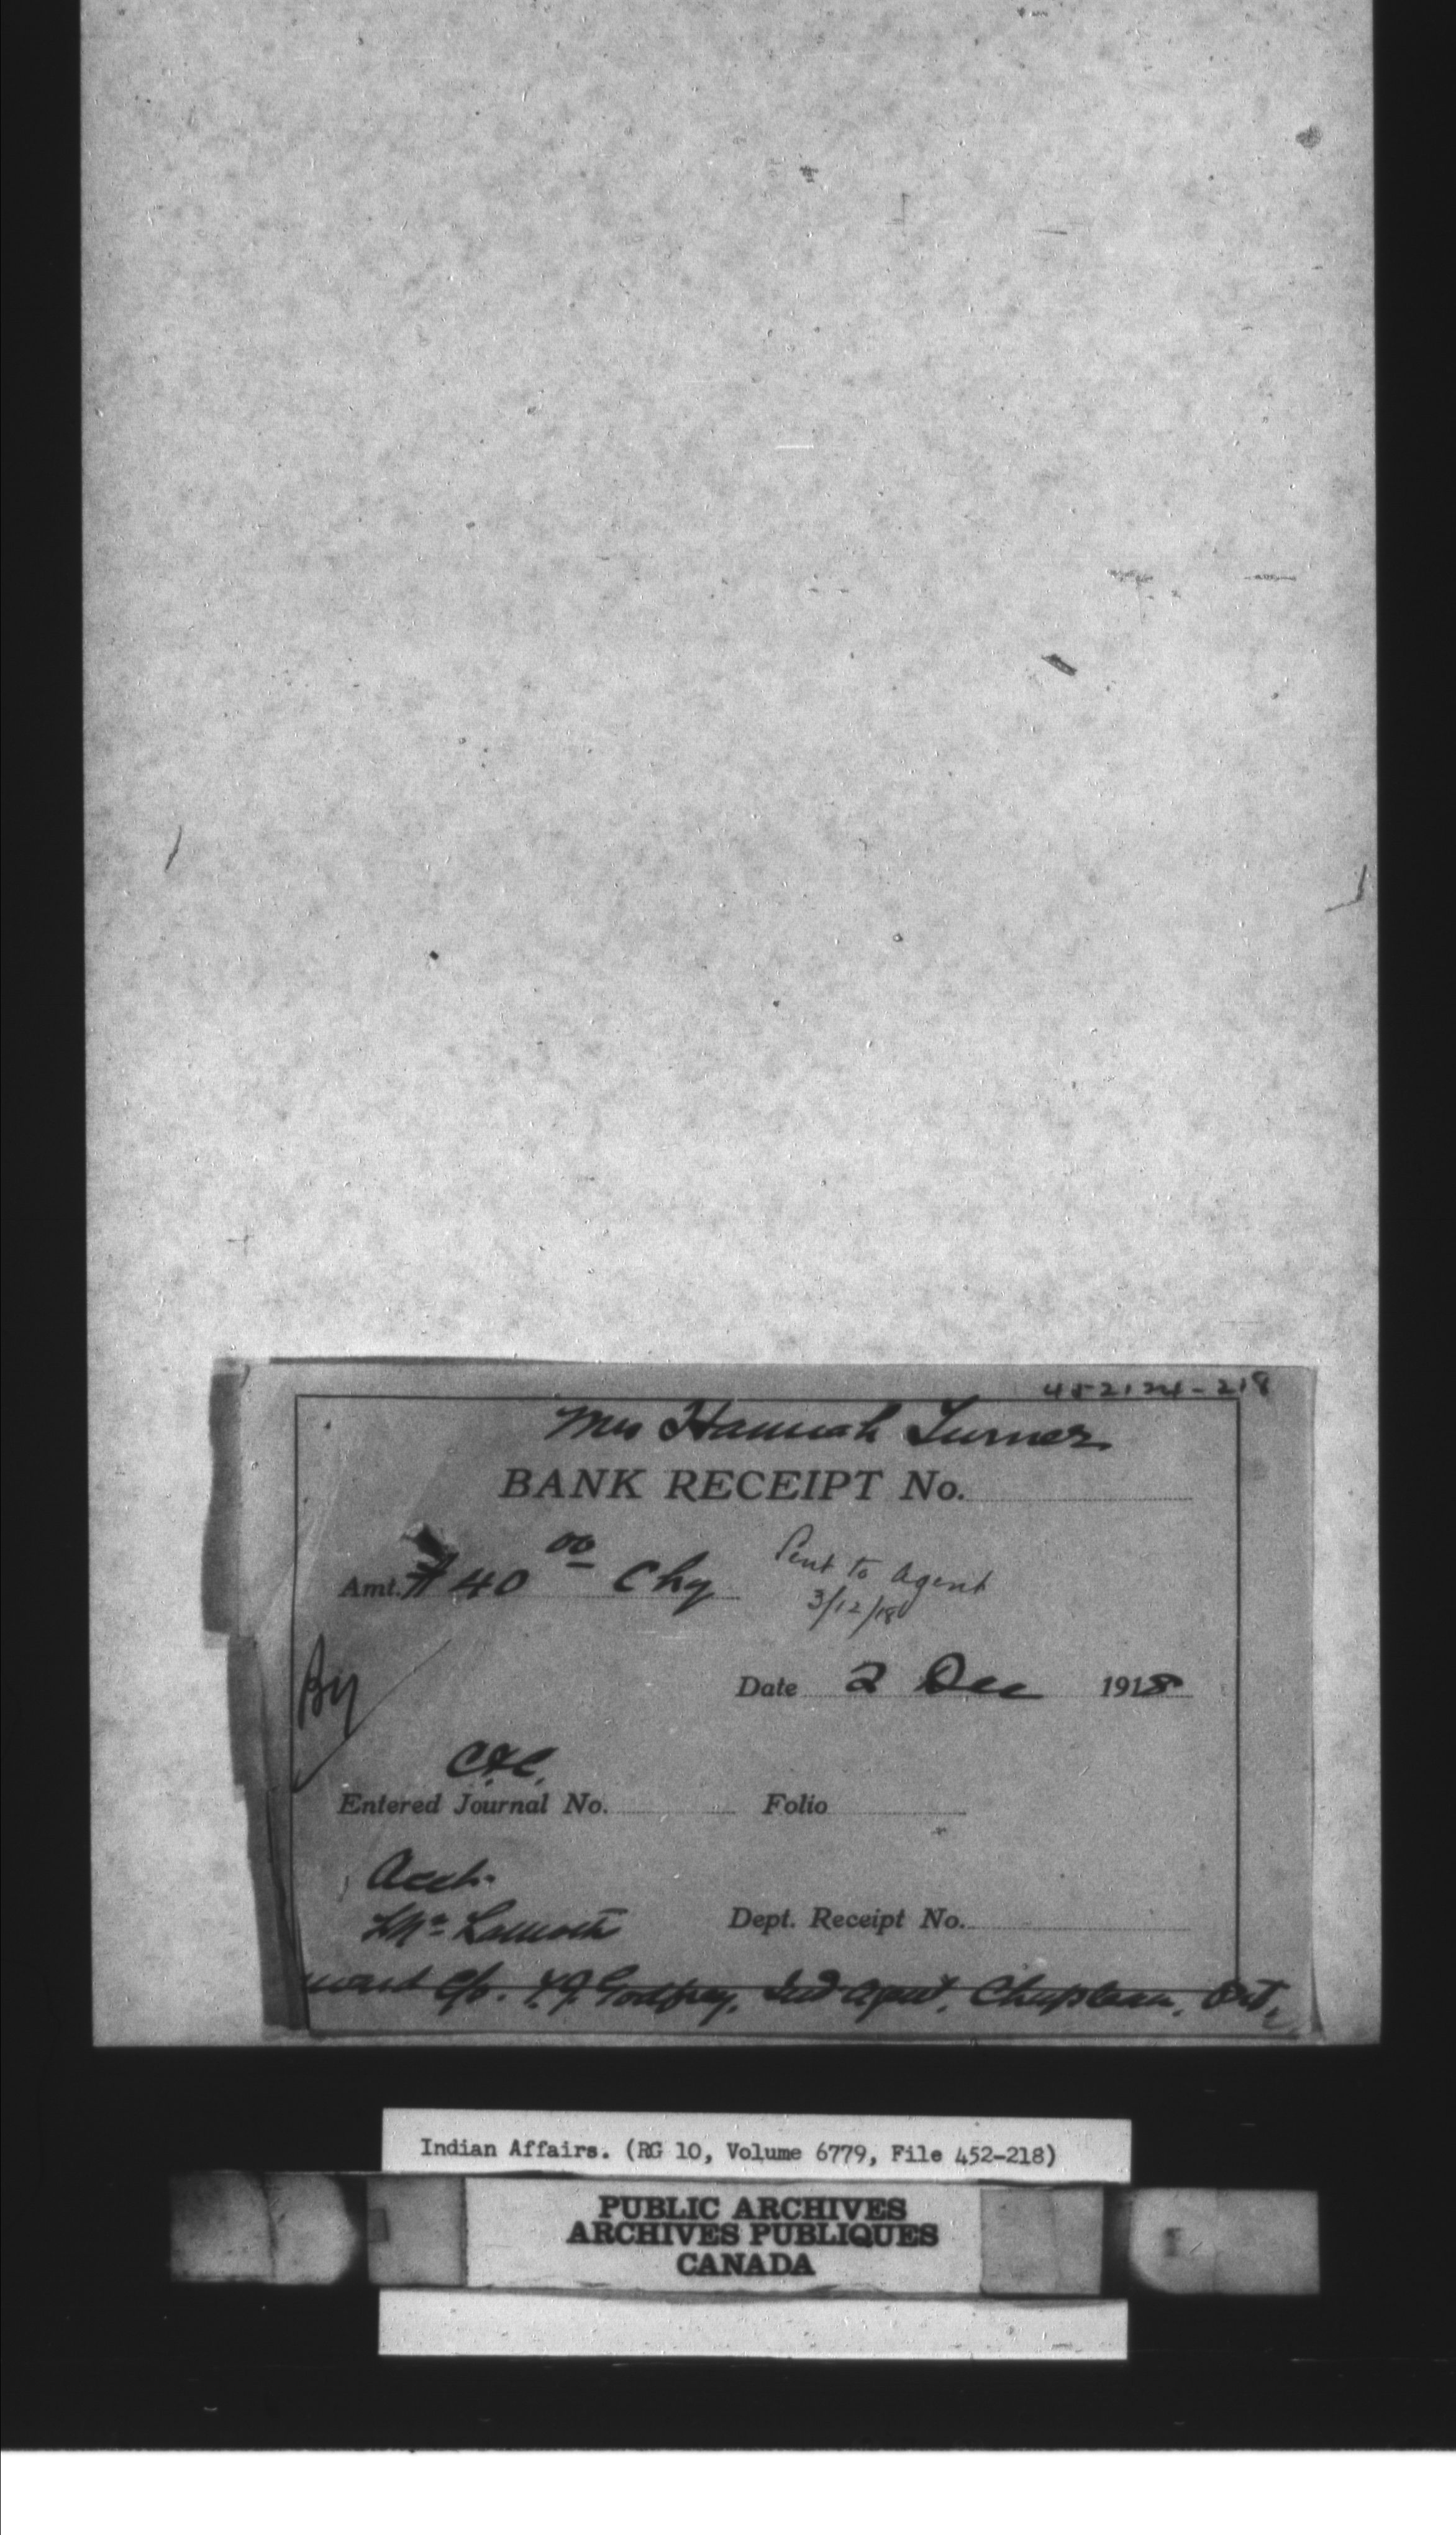 452124-218
Mrs Hannah Turner
BANK RECEIPT No.
Amt. $40 00 Chq
Sent to Agent
3/12/18
By
Date 2 Dec 1918
Entered Journal No. Folio
Acct.
Dept. Receipt No.
c/o. Godfrey, Ind Agent, Chapleau, Ont.
Indian Affairs. (RG 10, Volume 6779, File 452-218)
PUBLIC ARCHIVES
ARCHIVES PUBLIQUES
CANADA